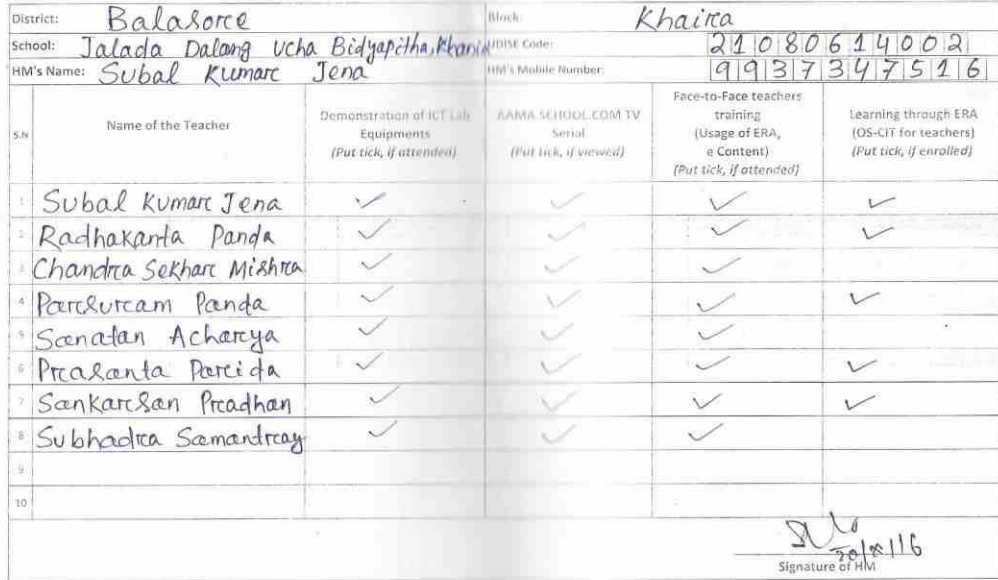 District: Balasorce Block: Khairca
School: Jalada Dalang Ucha Bidyapitha, Khania UDISE Code: 21080614002
HM's Name: Subal Kumarc Jena HM's Mobile Number: 9937347516
S.N Name of the Teacher Demonstration of ICT Lab Equipments (Put tick, if attended) AAMA SCHOOL.COM TV Serial (Put tick, if viewed) Face-to-Face teachers training (Usage of ERA, e Content) (Put tick, if attended) Learning through ERA (OS-CIT for teachers) (Put tick, if enrolled)
1 Subal Kumarc Jena ✓ ✓ ✓ ✓
2 Radhakanta Panda ✓ ✓ ✓ ✓
3 Chandrca Sekharc Mishrca ✓ ✓ ✓
4 Parcsurcam Panda ✓ ✓ ✓ ✓
5 Sanatan Acharcya ✓ ✓ ✓
6 Prcasanta Parcida ✓ ✓ ✓ ✓
7 Sankarcsan Prcadhan ✓ ✓ ✓ ✓
8 Subhadrca Samantrcay ✓ ✓ ✓
9
10
Signature of HM